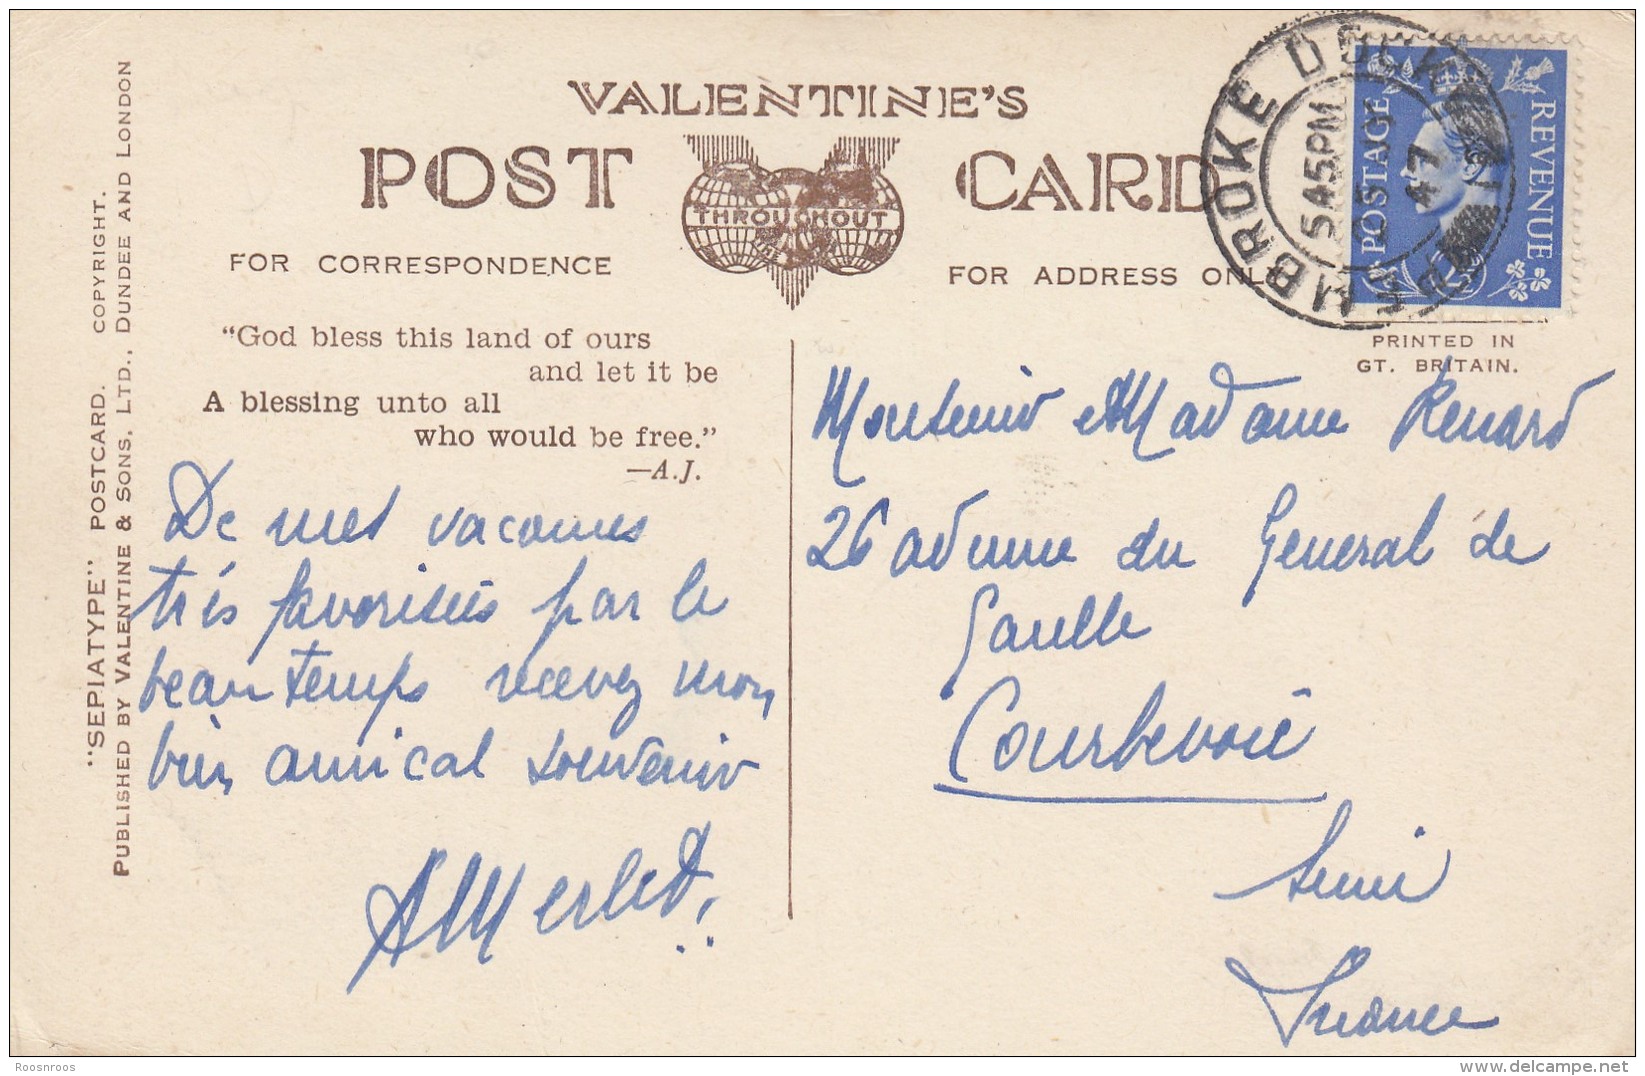 VALENTINE'S
POST CARD
THROUGHOUT
FOR CORRESPONDENCE
FOR ADDRESS ONLY
PEMBROKE DOCK
5 45 PM
47
POSTAGE
REVENUE
PRINTED IN
GT. BRITAIN.
"SEPIATYPE" POSTCARD. COPYRIGHT.
PUBLISHED BY VALENTINE & SONS, LTD., DUNDEE AND LONDON
"God bless this land of ours
and let it be
A blessing unto all
who would be free."
—A.J.
De mes vacances
très favorisées par le
beau temps recevez mon
bien amical souvenir
AMerlet
Monsieur et Madame Renard
26 avenue du General de
Gaulle
Courbevoie
Seine
France
Roosnroos
delcampe.net